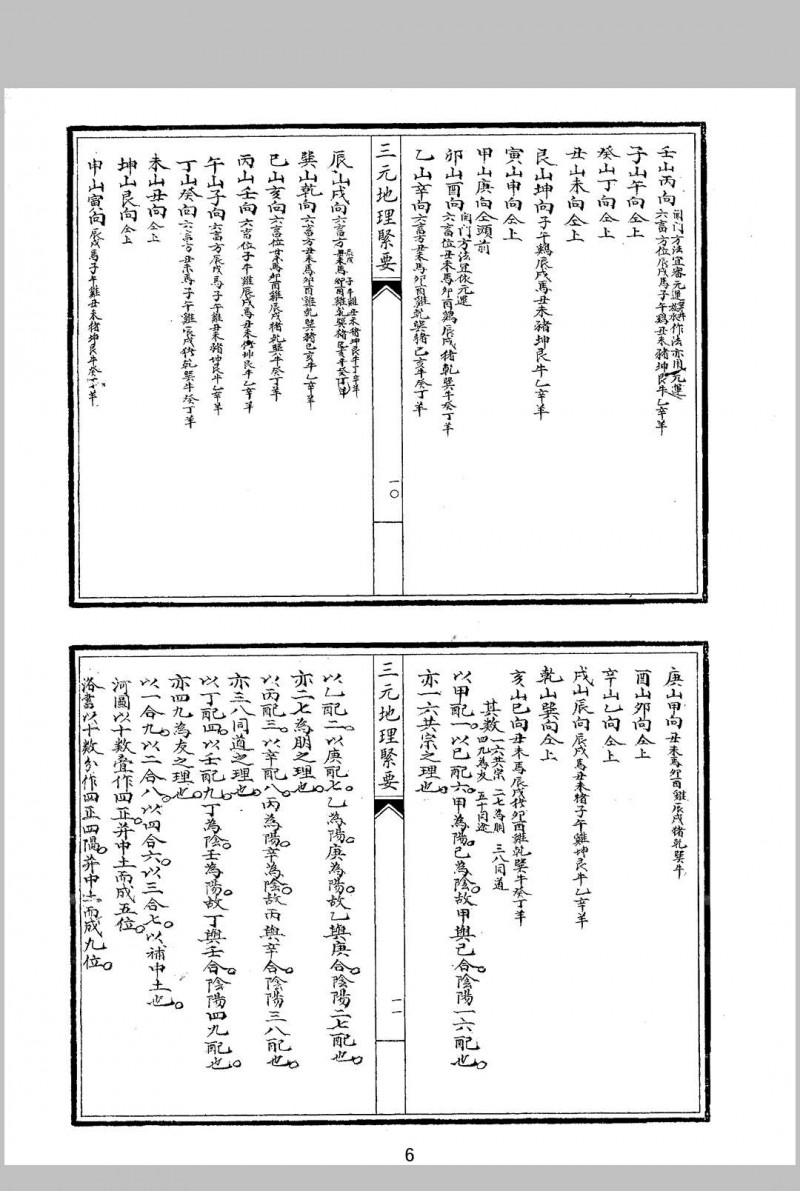 壬山丙向 開門方法宜審元運 放水作法亦用元運
六畜方位辰戌馬子午鷄丑未豬坤艮牛乙辛羊
子山午向仝上
癸山丁向仝上
丑山未向仝上
艮山坤向子午鷄辰戌馬丑未豬坤艮牛乙辛羊
寅山申向仝上
甲山庚向仝頭前
卯山酉向 開門方法宜依元運
六畜位丑未馬卯酉鷄辰戌猪乾巽牛癸丁羊
乙山辛向六畜方丑未馬卯酉雞乾巽猪巳亥牛癸丁羊
三元地理緊要
一〇
辰山戌向 辰戌 子午雞丑未猪坤艮牛丁辛羊
六畜方丑未馬卯酉雞乾巽猪巳亥牛癸丁羊
巽山乾向六畜方丑未馬卯酉雞乾巽猪巳亥牛乙辛羊
巳山亥向六畜位丑未馬卯酉雞辰戌猪乾巽牛癸丁羊
丙山壬向六畜位子午雞辰戌馬丑未猪坤艮牛乙辛羊
午山子向六畜方辰戌馬子午雞丑未猪坤艮牛乙辛羊
丁山癸向六畜方丑未馬子午雞辰戌猪乾巽牛癸丁羊
未山丑向仝上
坤山艮向仝上
申山寅向辰戌馬子午雞丑未猪坤艮牛癸丁羊
庚山甲向丑未馬卯酉雞辰戌猪乾巽牛
酉山卯向仝上
辛山乙向仝上
戌山辰向辰戌馬丑未猪子午雞坤艮牛乙辛羊
乾山巽向仝上
亥山巳向丑未馬辰戌猪卯酉雞乾巽牛癸丁羊
其数 一六共宗 二七為朋 三八同道
四九為友 五十同途
以甲配一以己配六甲為陽己為陰故甲與己合陰陽一六配也
亦一六共宗之理也
三元地理緊要
一一
以乙配二以庚配七乙為陽庚為陽故乙與庚合陰陽二七配也
亦二七為朋之理也
以丙配三以辛配八丙為陽辛為陰故丙與辛合陰陽三八配也
亦三八同道之理也
以丁配四以壬配九丁為陰壬為陽故丁與壬合陰陽四九配也
亦四九為友之理也
以一合九以二合八以四合六以三合七以補中土也
河圖以十数壹作四正并中土而成五位
洛書以十数分作四正四隅并中土而成九位
6